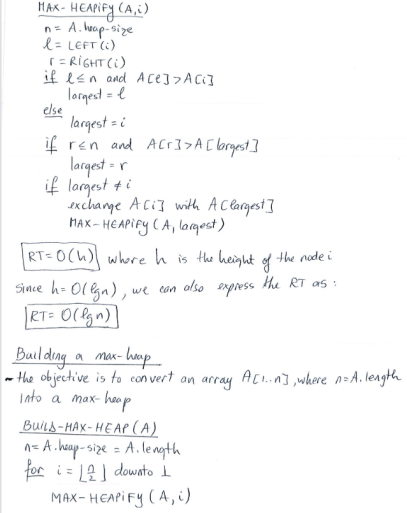 MAX-HEAPIFY (A,i)
n = A.heap-size
l = LEFT(i)
r = RIGHT(i)
if l≤n and A[l]>A[i]
largest = l
else
largest = i
if r≤n and A[r]>A[largest]
largest = r
if largest ≠ i
exchange A[i] with A[largest]
MAX-HEAPIFY (A, largest)
RT= O(h) where h is the height of the node i
since h= O(lgn), we can also express the RT as:
RT= O(lgn)
Building a max-heap
- the objective is to convert an array A[1..n], where n=A.length
into a max-heap
BUILD-MAX-HEAP (A)
n= A.heap-size = A.length
for i = ⌊n/2⌋ downto 1
MAX-HEAPIFY (A,i)